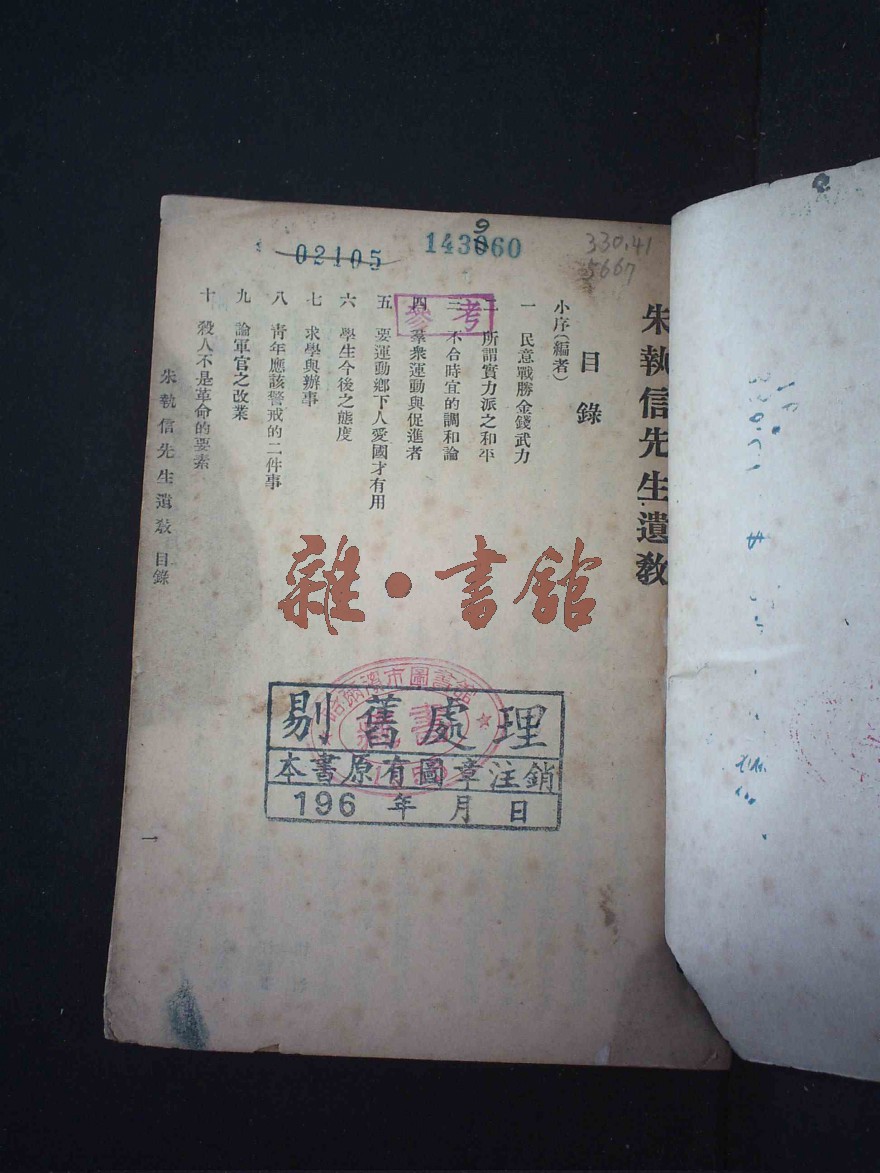 朱執信先生遺教
目錄
小序(編者)
一 民意戰勝金錢武力
二 所謂實力派之和平
三 不合時宜的調和論
四 羣衆運動與促進者
五 要運動鄉下人愛國才有用
六 學生今後之態度
七 求學與辦事
八 靑年應該警戒的二件事
九 論軍官之改業
十 殺人不是革命的要素
朱執信先生遺敎 目錄
一
02105
143060
9
330.41
5667
參考
雜·書館
剔舊處理
本書原有圖章注銷
196 年 月 日